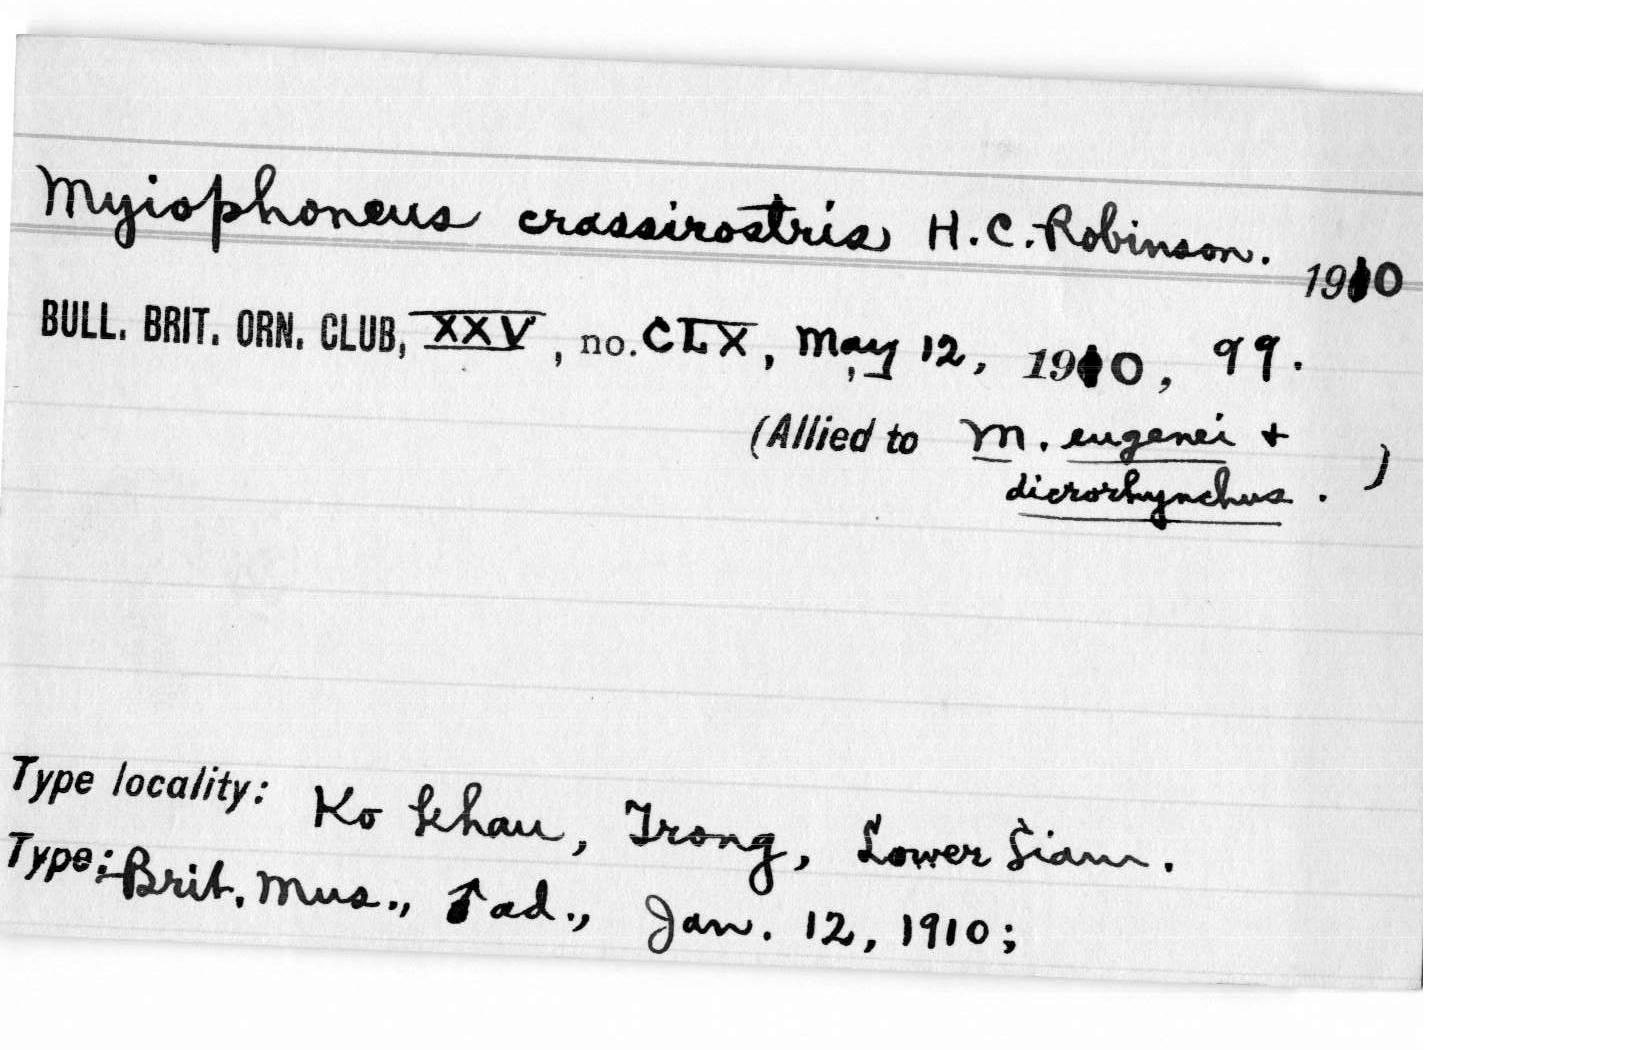 Myiophoneus crassirostris H.C. Robinson.
1910
BULL. BRIT. ORN. CLUB, XXV, no. CLX, May 12, 1910, 99.
(Allied to M. eugenei +
dicrorhynchus. )
Type locality: Ko Khau, Trong, Lower Siam.
Type: Brit. Mus., ♂ ad., Jan. 12, 1910;